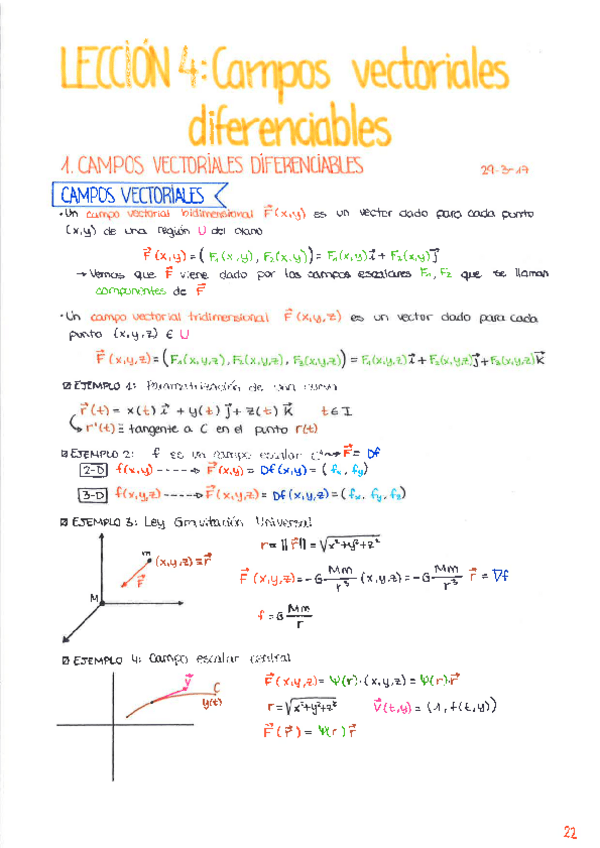 LECCIÓN 4: Campos vectoriales
diferenciables
1. CAMPOS VECTORIALES DIFERENCIABLES 29-3-17
CAMPOS VECTORIALES
• Un campo vectorial bidimensional F⃗(x,y) es un vector dado para cada punto
(x,y) de una región U del plano
F⃗(x,y) = (F₁(x,y), F₂(x,y)) = F₁(x,y)i⃗ + F₂(x,y)j⃗
→ Vemos que F⃗ viene dado por los campos escalares F₁, F₂ que se llaman
componentes de F⃗
• Un campo vectorial tridimensional F⃗(x,y,z) es un vector dado para cada
punto (x,y,z) ∈ U
F⃗(x,y,z) = (F₁(x,y,z), F₂(x,y,z), F₃(x,y,z)) = F₁(x,y,z)i⃗ + F₂(x,y,z)j⃗ + F₃(x,y,z)k⃗
EJEMPLO 1: Parametrización de una curva
r⃗(t) = x(t)i⃗ + y(t)j⃗ + z(t)k⃗ t ∈ I
r'(t) ≡ tangente a C en el punto r(t)
EJEMPLO 2: f es un campo escalar C¹ → F⃗ = ∇f
2-D f(x,y) ----→ F⃗(x,y) = ∇f(x,y) = (fx, fy)
3-D f(x,y,z) ----→ F⃗(x,y,z) = ∇f(x,y,z) = (fx, fy, fz)
EJEMPLO 3: Ley Gravitación Universal
r = ||r⃗|| = √x²+y²+z²
m
(x,y,z) ≡ r⃗
F⃗
M
F⃗(x,y,z) = -G · Mm/r³ (x,y,z) = -G · Mm/r³ r⃗ = ∇f
f = G Mm/r
EJEMPLO 4: Campo escalar central
V⃗
C
y(t)
F⃗(x,y,z) = Ψ(r)·(x,y,z) = Ψ(r)·r⃗
r = √x²+y²+z² V⃗(t,y) = (1, f(t,y))
F⃗(r⃗) = Ψ(r)r⃗
22